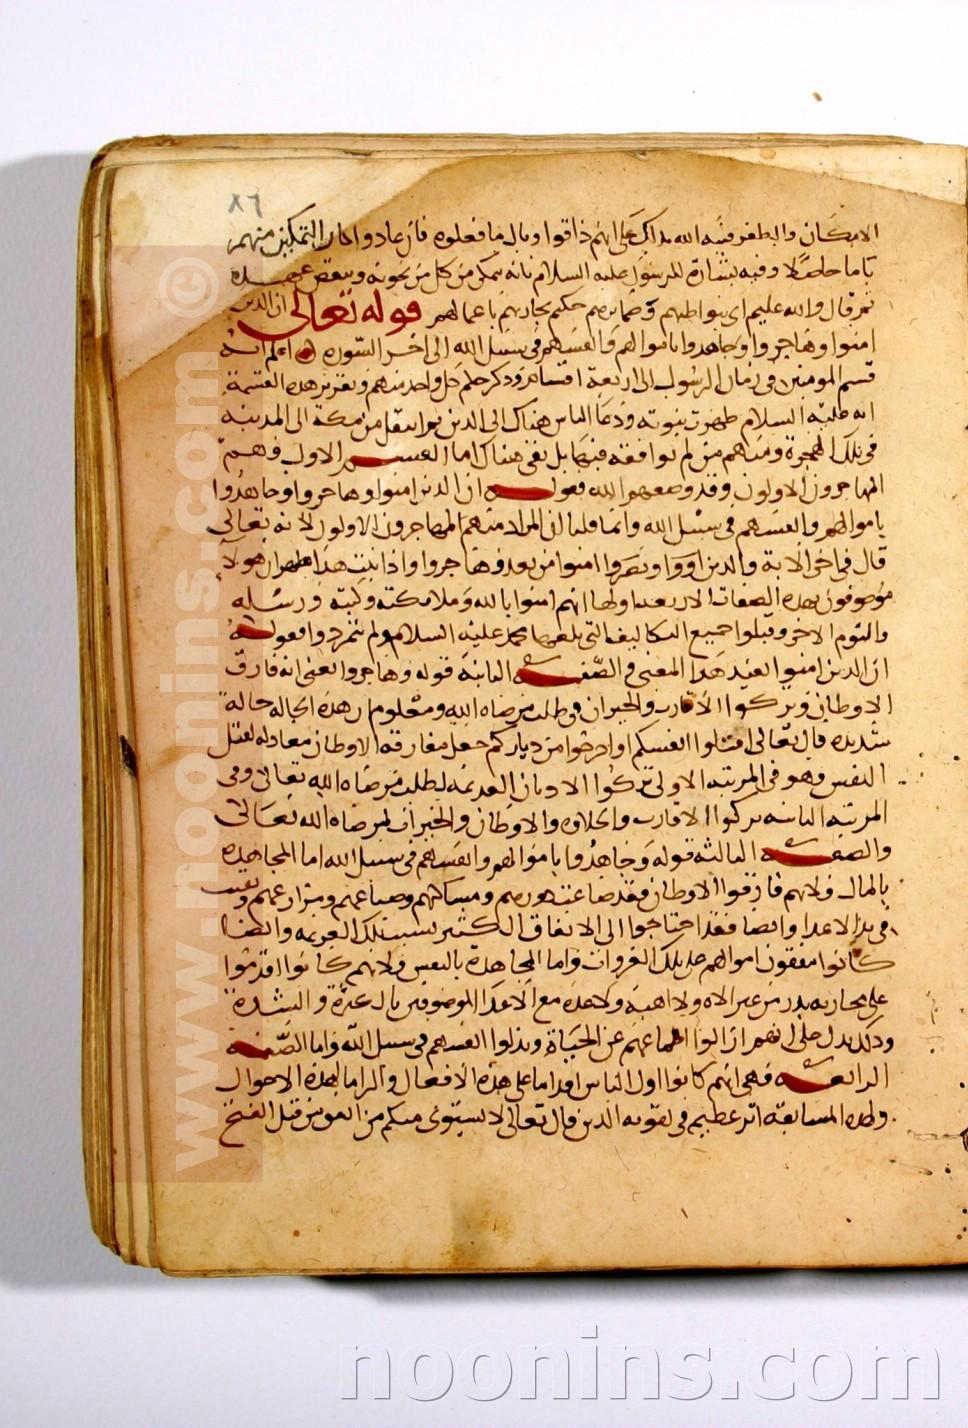 ٨٦
الامكان والظفر فنبه الله بذلك على انهم ذاقوا وبال ما فعلوه فان عادوا كان التمكين منهم
ثابتا حاصلا وفيه بشارة للرسول عليه السلام بانه يتمكن من كل من يخونه وينقض عهده
ثم قال والله عليم اى ببواطنهم وضمايرهم حكيم يجازيهم باعمالهم قوله تعالى ان الذين
امنوا وهاجروا وجاهدوا باموالهم وانفسهم فى سبيل الله الى اخر السورة اعلم انه
قسم المومنين فى زمان الرسول الى اربعة اقسام وذكر حكم كل واحد منهم وتقرير هذه القسمة
انه عليه السلام ظهرت نبوته ودعا الناس هناك الى الدين ثم انتقل من مكة الى المدينه
فى تلك الهجرة ومنهم من لم يوافقه فيها بل بقى هناك اما القسم الاول فهم
المهاجرون الاولون وقد وصفهم الله بقوله ان الذين امنوا وهاجروا وجاهدوا
باموالهم وانفسهم فى سبيل الله وانما قلنا ان المراد منهم المهاجرون الاولون لانه تعالى
قال فى اخر الاية والذين اووا ونصروا امنوا من بعد وهاجروا واذا ثبت هذا ظهر ان هولاء
موصوفون بهذه الصفات الاربعة اولها انهم امنوا بالله وملائكته وكتبه ورسله
واليوم الاخر وقبلوا جميع التكاليف التى بلغها محمد عليه السلام ولم يتمردوا فقوله
ان الذين امنوا يفيد هذا المعنى والصفة الثانية قوله وهاجروا يعنى انه فارق
الاوطان وتركوا الاقارب والجيران فى طلب مرضاه الله ومعلوم ان هذه الحاله حالة
شديده قال تعالى اقتلوا انفسكم او اخرجوا من دياركم جعل مفارقه الاوطان معادله لقتل
النفس فهو فى المرتبه الاولى تركوا الاديان القديمه لطلب مرضاه الله تعالى وفى
المرتبه الثانيه تركوا الاقارب والخلان والاوطان والجيران لمرضاه الله تعالى
والصفة الثالثه قوله وجاهدوا باموالهم وانفسهم فى سبيل الله اما المجاهده
بالمال فلانهم فارقوا الاوطان فقد ضاعت دورهم ومساكنهم وضياعهم ومزارعهم وبقيت
فى يد الاعدا وايضا فقد احتاجوا الى الانفاق الكثير بسبب تلك العزيمه وايضا
كانوا ينفقون اموالهم على تلك الغزوات واما المجاهدة بالنفس فلانهم كانوا اقدموا
على محاربه بدر من غير الة ولا اهبة ولا عدة مع الاعدا الموصوفين بالكثرة والشدة
وذلك يدل على انهم ازالوا اطماعهم عن الحياة وبذلوا انفسهم فى سبيل الله واما الصفة
الرابعة فهى انهم كانوا اول الناس اقداما على هذه الافعال والتزاما لهذه الاحوال
ولهذه المسابقة اثر عظيم فى تقويه الدين قال تعالى لا يستوى منكم من انفق من قبل الفتح
© www.noonins.com
noonins.com